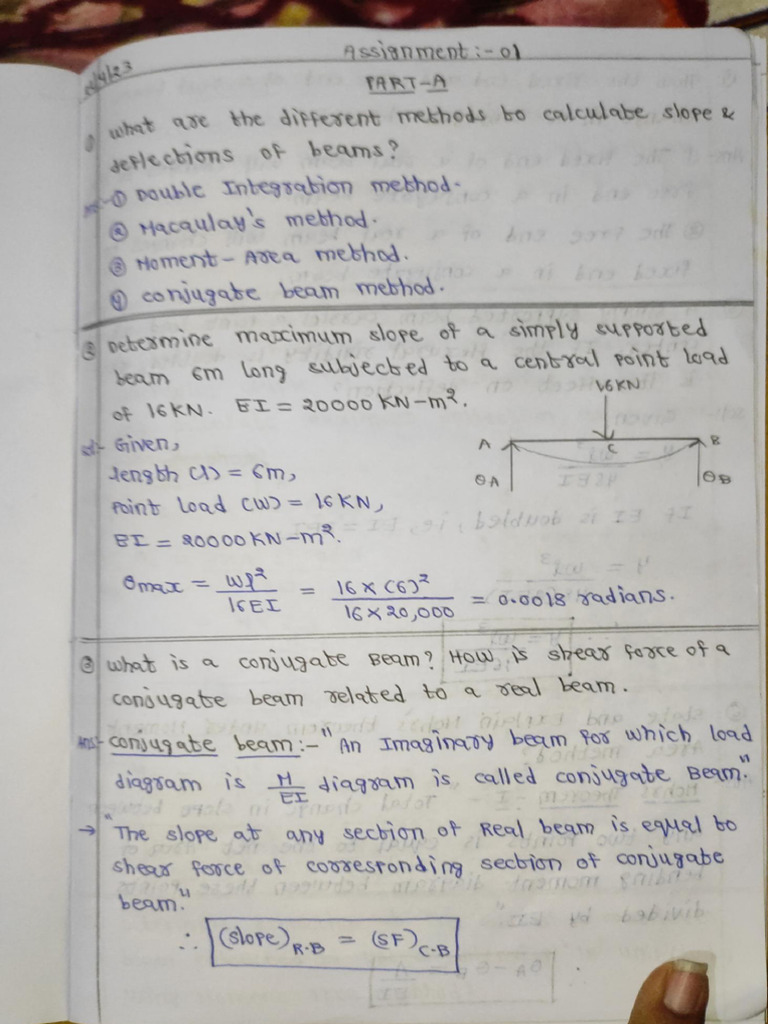 Assignment:-01
PART-A
1) What are the different methods to calculate slope &
deflections of beams?
Ans:- ① Double Integration method.
② Macaulay's method.
③ Moment-Area method.
④ conjugate beam method.
② Determine maximum slope of a simply supported
beam 6m long subjected to a central point load
of 16KN. EI = 20000 KN-m².
16KN
A C B
θA θB
sol:- Given,
length (l) = 6m,
point load (W) = 16KN,
EI = 20000 KN-m².
θmax = Wl²/16EI = 16×(6)²/16×20,000 = 0.0018 radians.
③ What is a conjugate Beam? How is shear force of a
conjugate beam related to a real beam.
Ans:- conjugate beam:- "An Imaginary beam for which load
diagram is M/EI diagram is called conjugate Beam."
→ "The slope at any section of Real beam is equal to
shear force of corresponding section of conjugate
beam."
∴ (slope)R-B = (SF)C-B